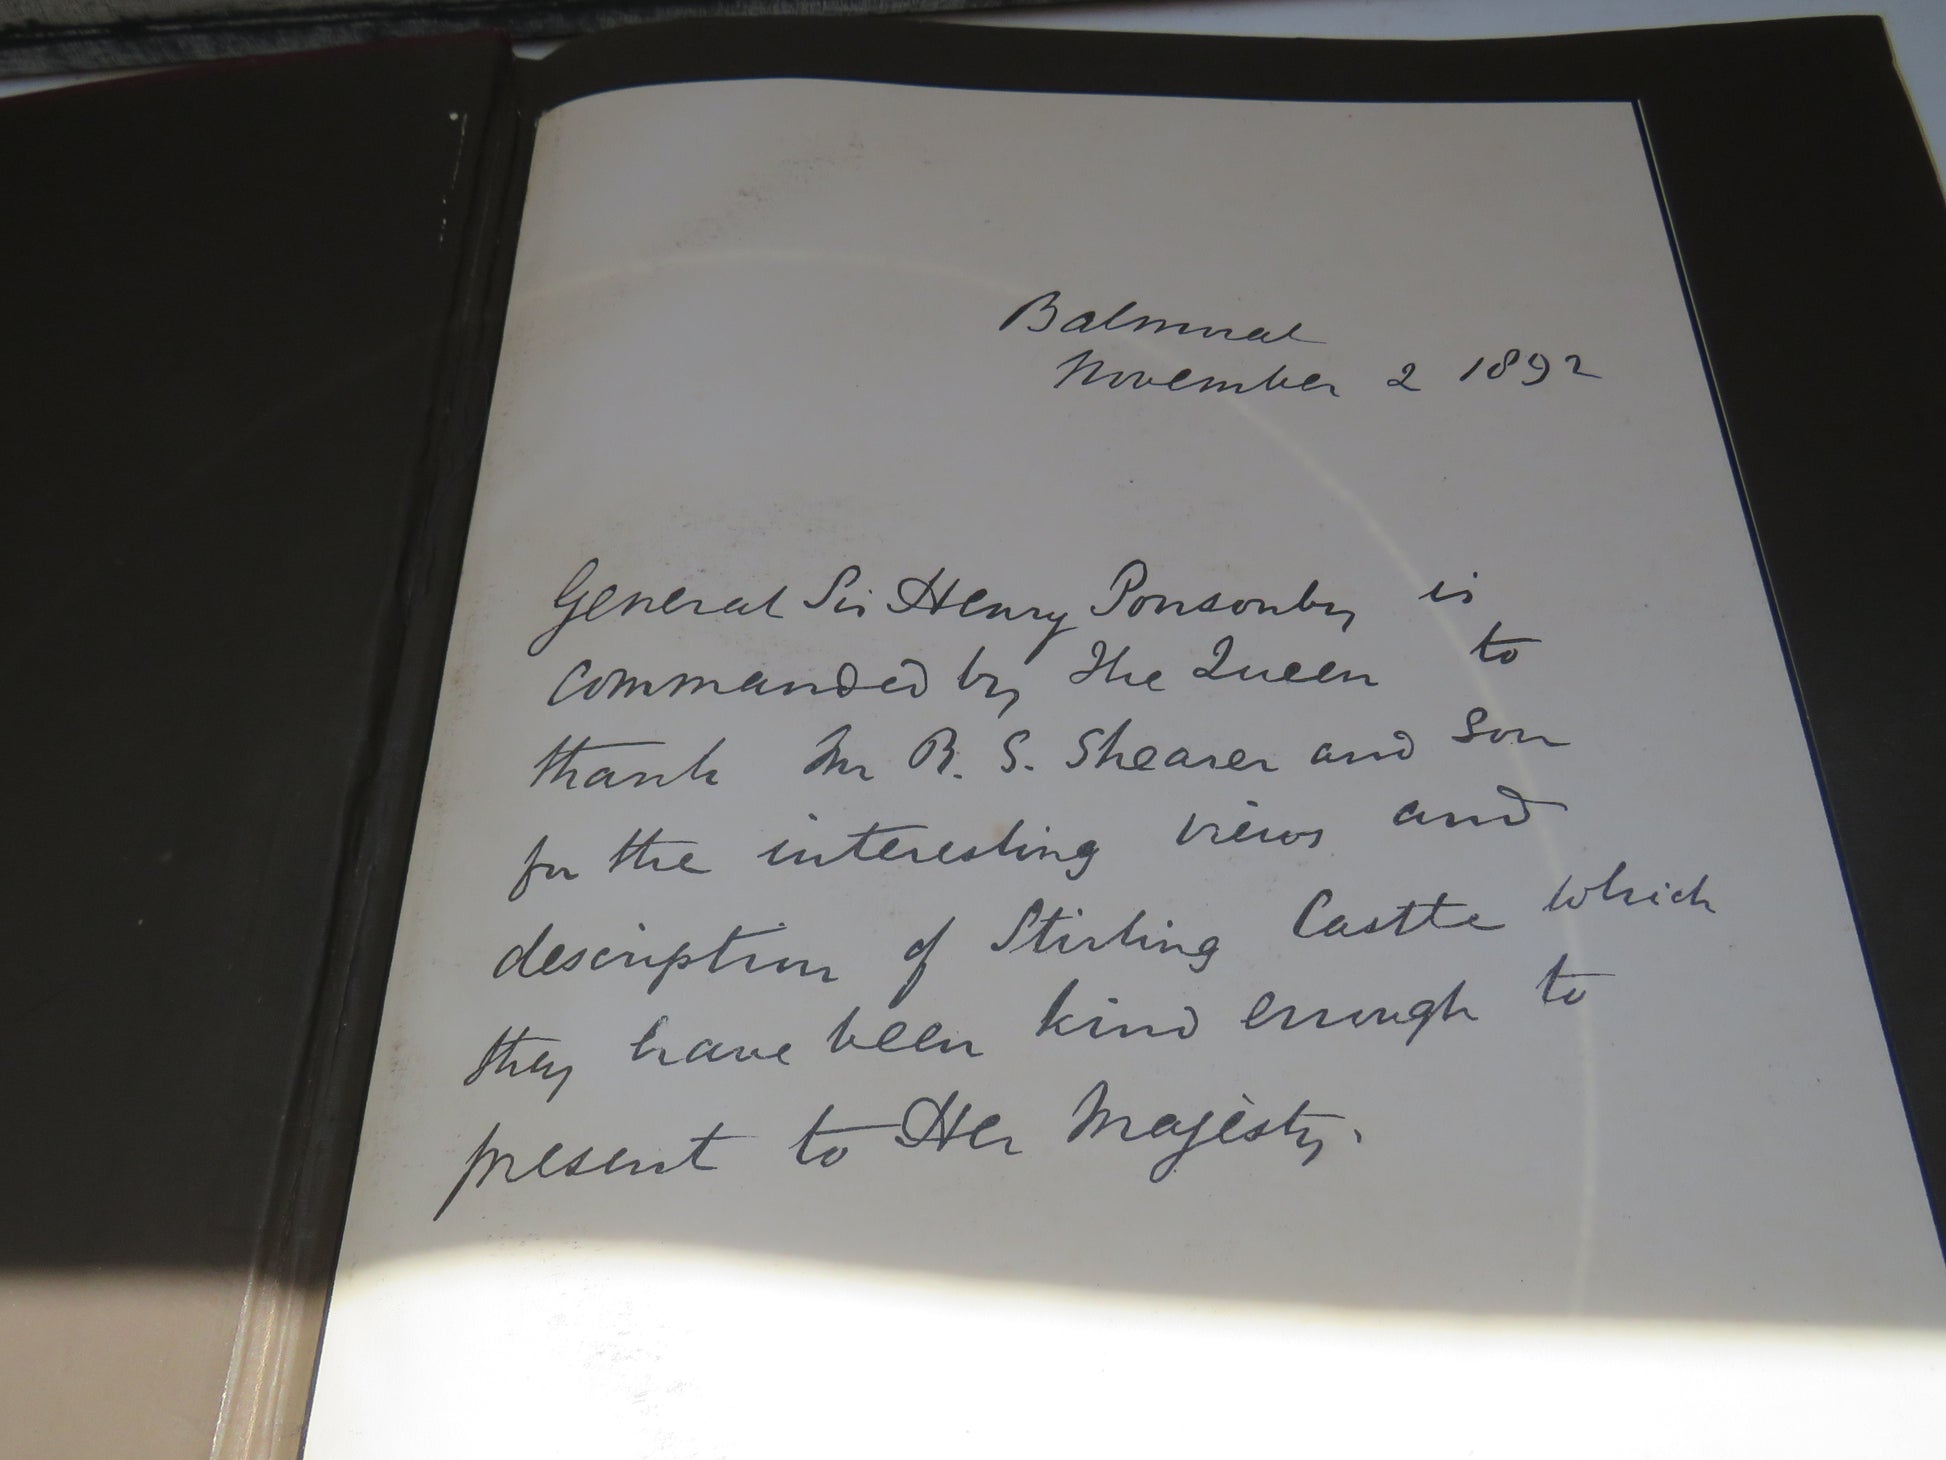 Balmoral
November 2 1892
General Sir Henry Ponsonby is
commanded by The Queen to
thank Mr R. S. Shearer and Son
for the interesting views and
description of Stirling Castle which
they have been kind enough to
present to Her Majesty.